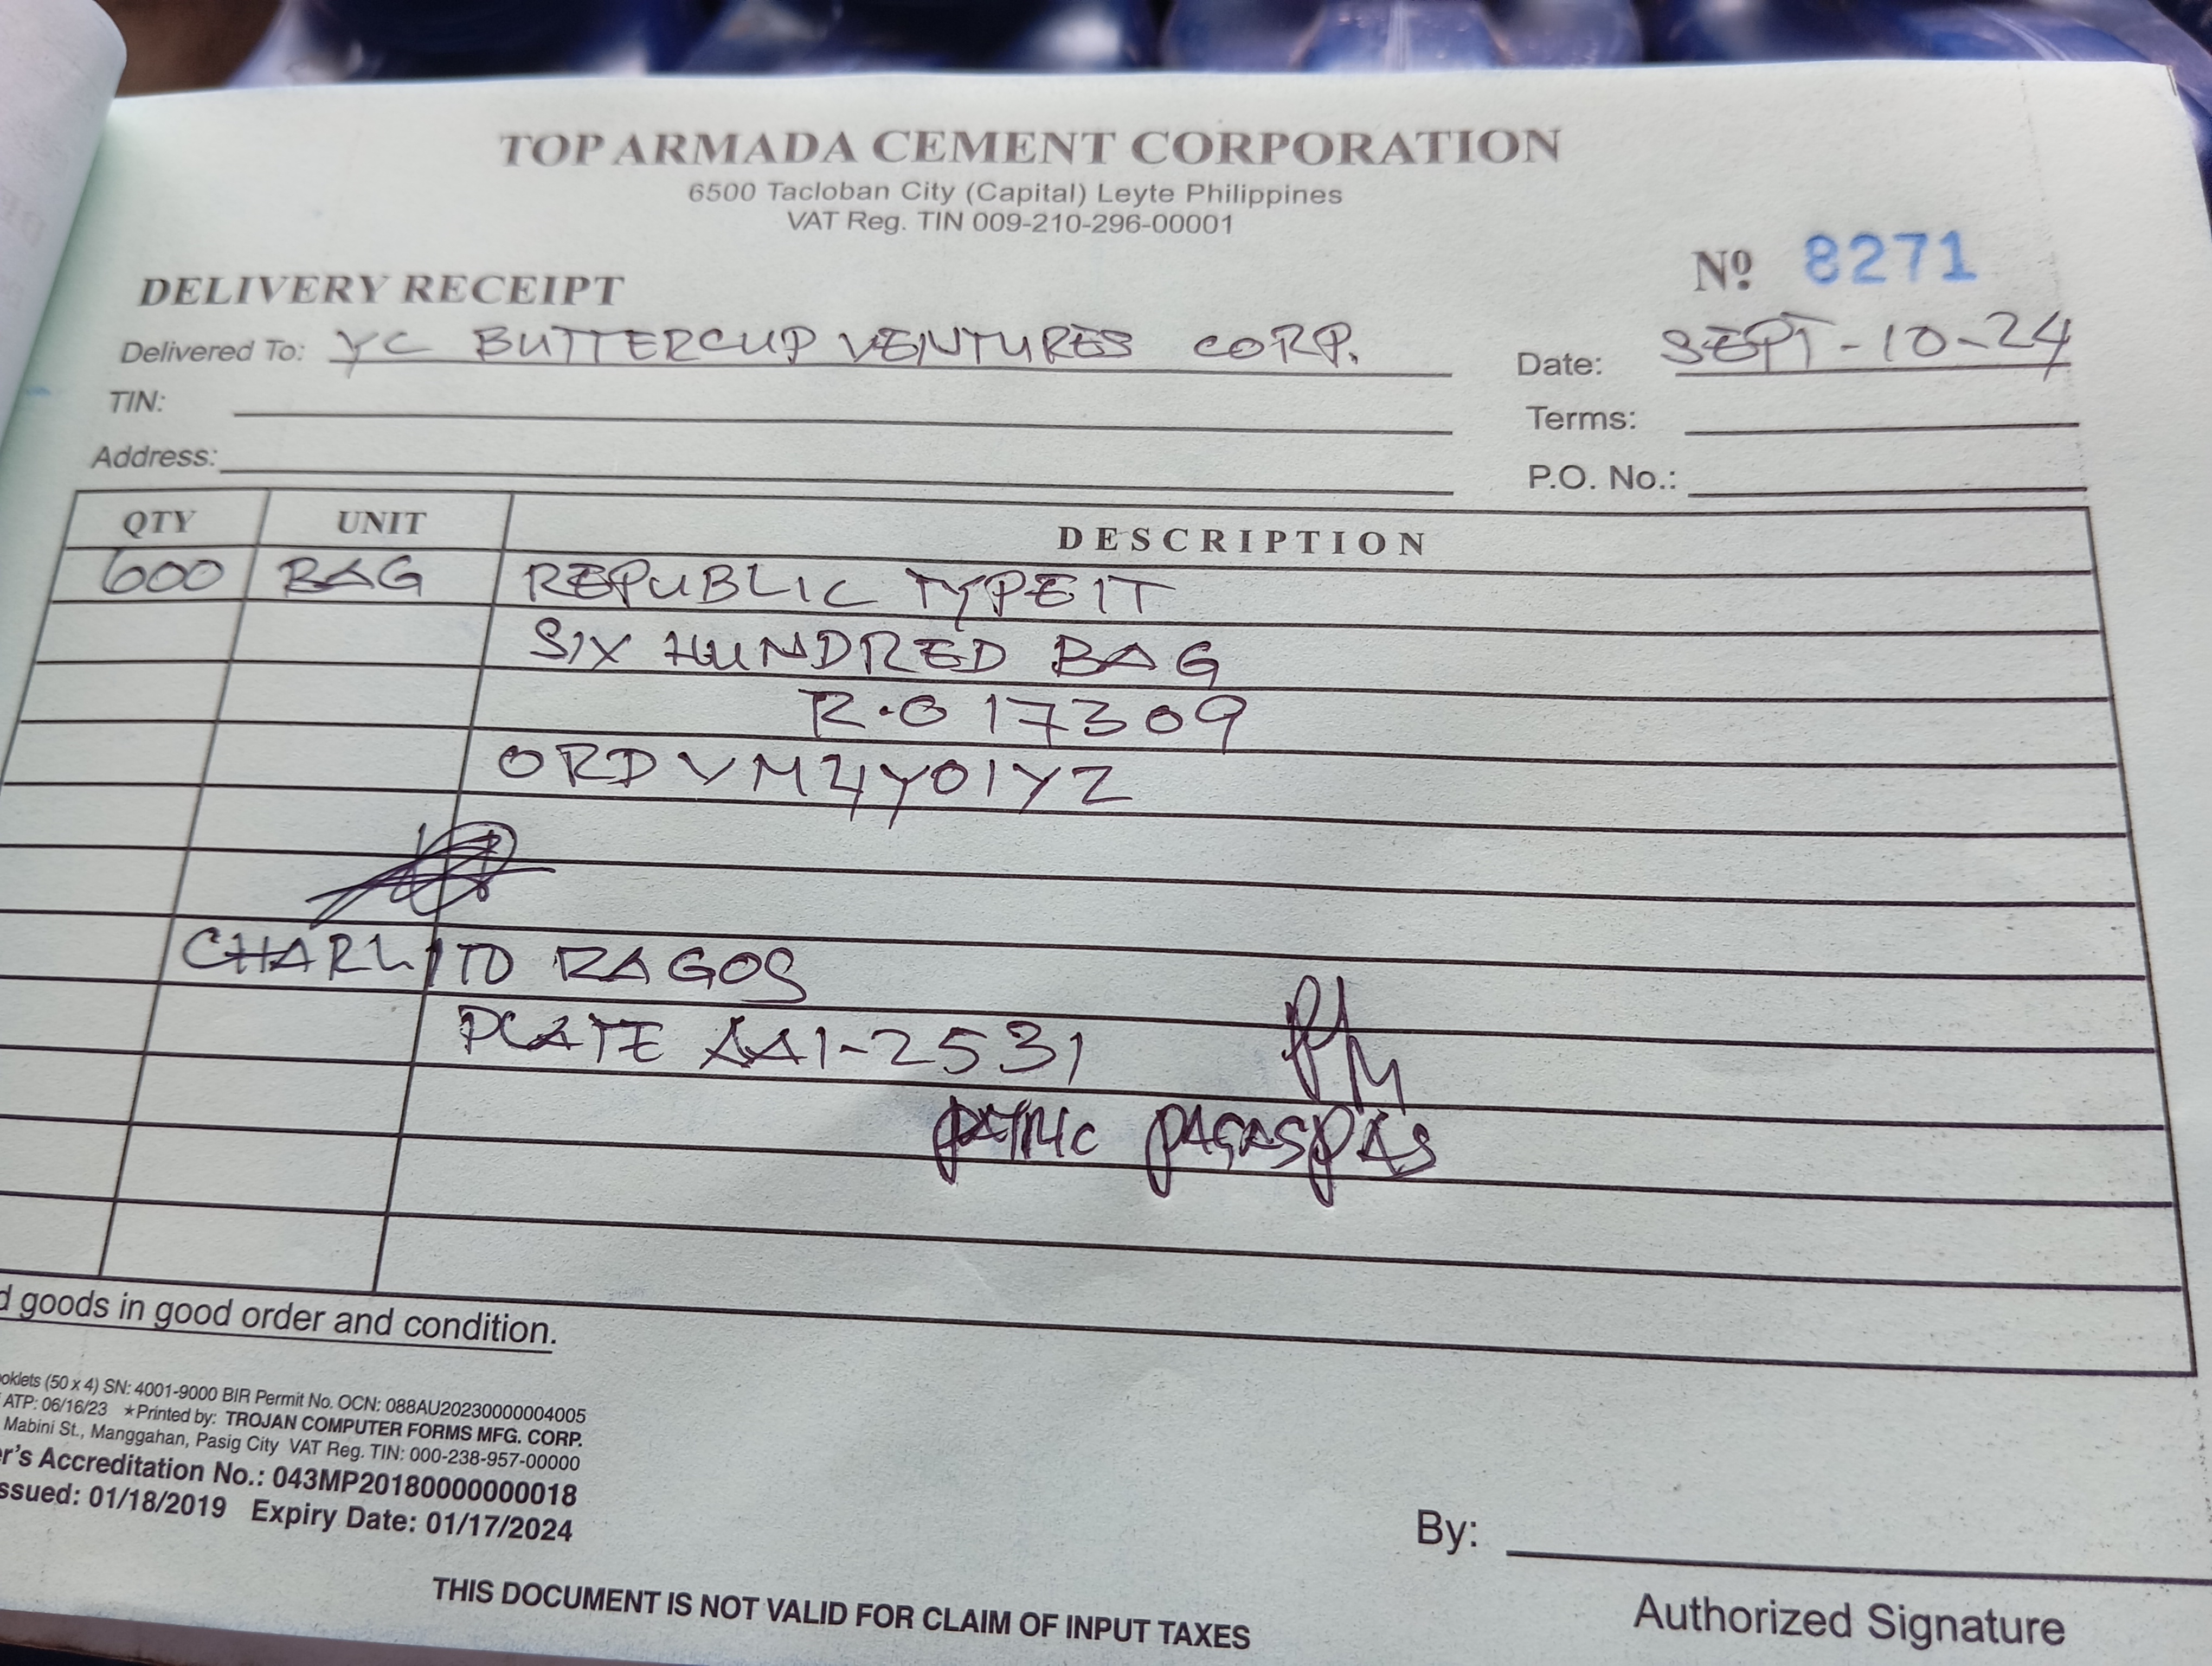 TOP ARMADA CEMENT CORPORATION
6500 Tacloban City (Capital) Leyte Philippines
VAT Reg. TIN 009-210-296-00001
Nº 8271
DELIVERY RECEIPT
Delivered To: YC BUTTERCUP VENTURES CORP.
Date: SEPT-10-24
TIN:
Terms:
Address:
P.O. No.:
QTY UNIT DESCRIPTION
600 BAG REPUBLIC TYPE 1T
SIX HUNDRED BAG
R.O 17309
ORDVM4Y01YZ
CHARLITO RAGOS
PLATE AAI-2531
PATRIC PAGASPAS
d goods in good order and condition.
oklets (50 x 4) SN: 4001-9000 BIR Permit No. OCN: 088AU20230000004005
ATP: 06/16/23 *Printed by: TROJAN COMPUTER FORMS MFG. CORP.
Mabini St., Manggahan, Pasig City VAT Reg. TIN: 000-238-957-00000
r's Accreditation No.: 043MP20180000000018
ssued: 01/18/2019 Expiry Date: 01/17/2024
By:
Authorized Signature
THIS DOCUMENT IS NOT VALID FOR CLAIM OF INPUT TAXES